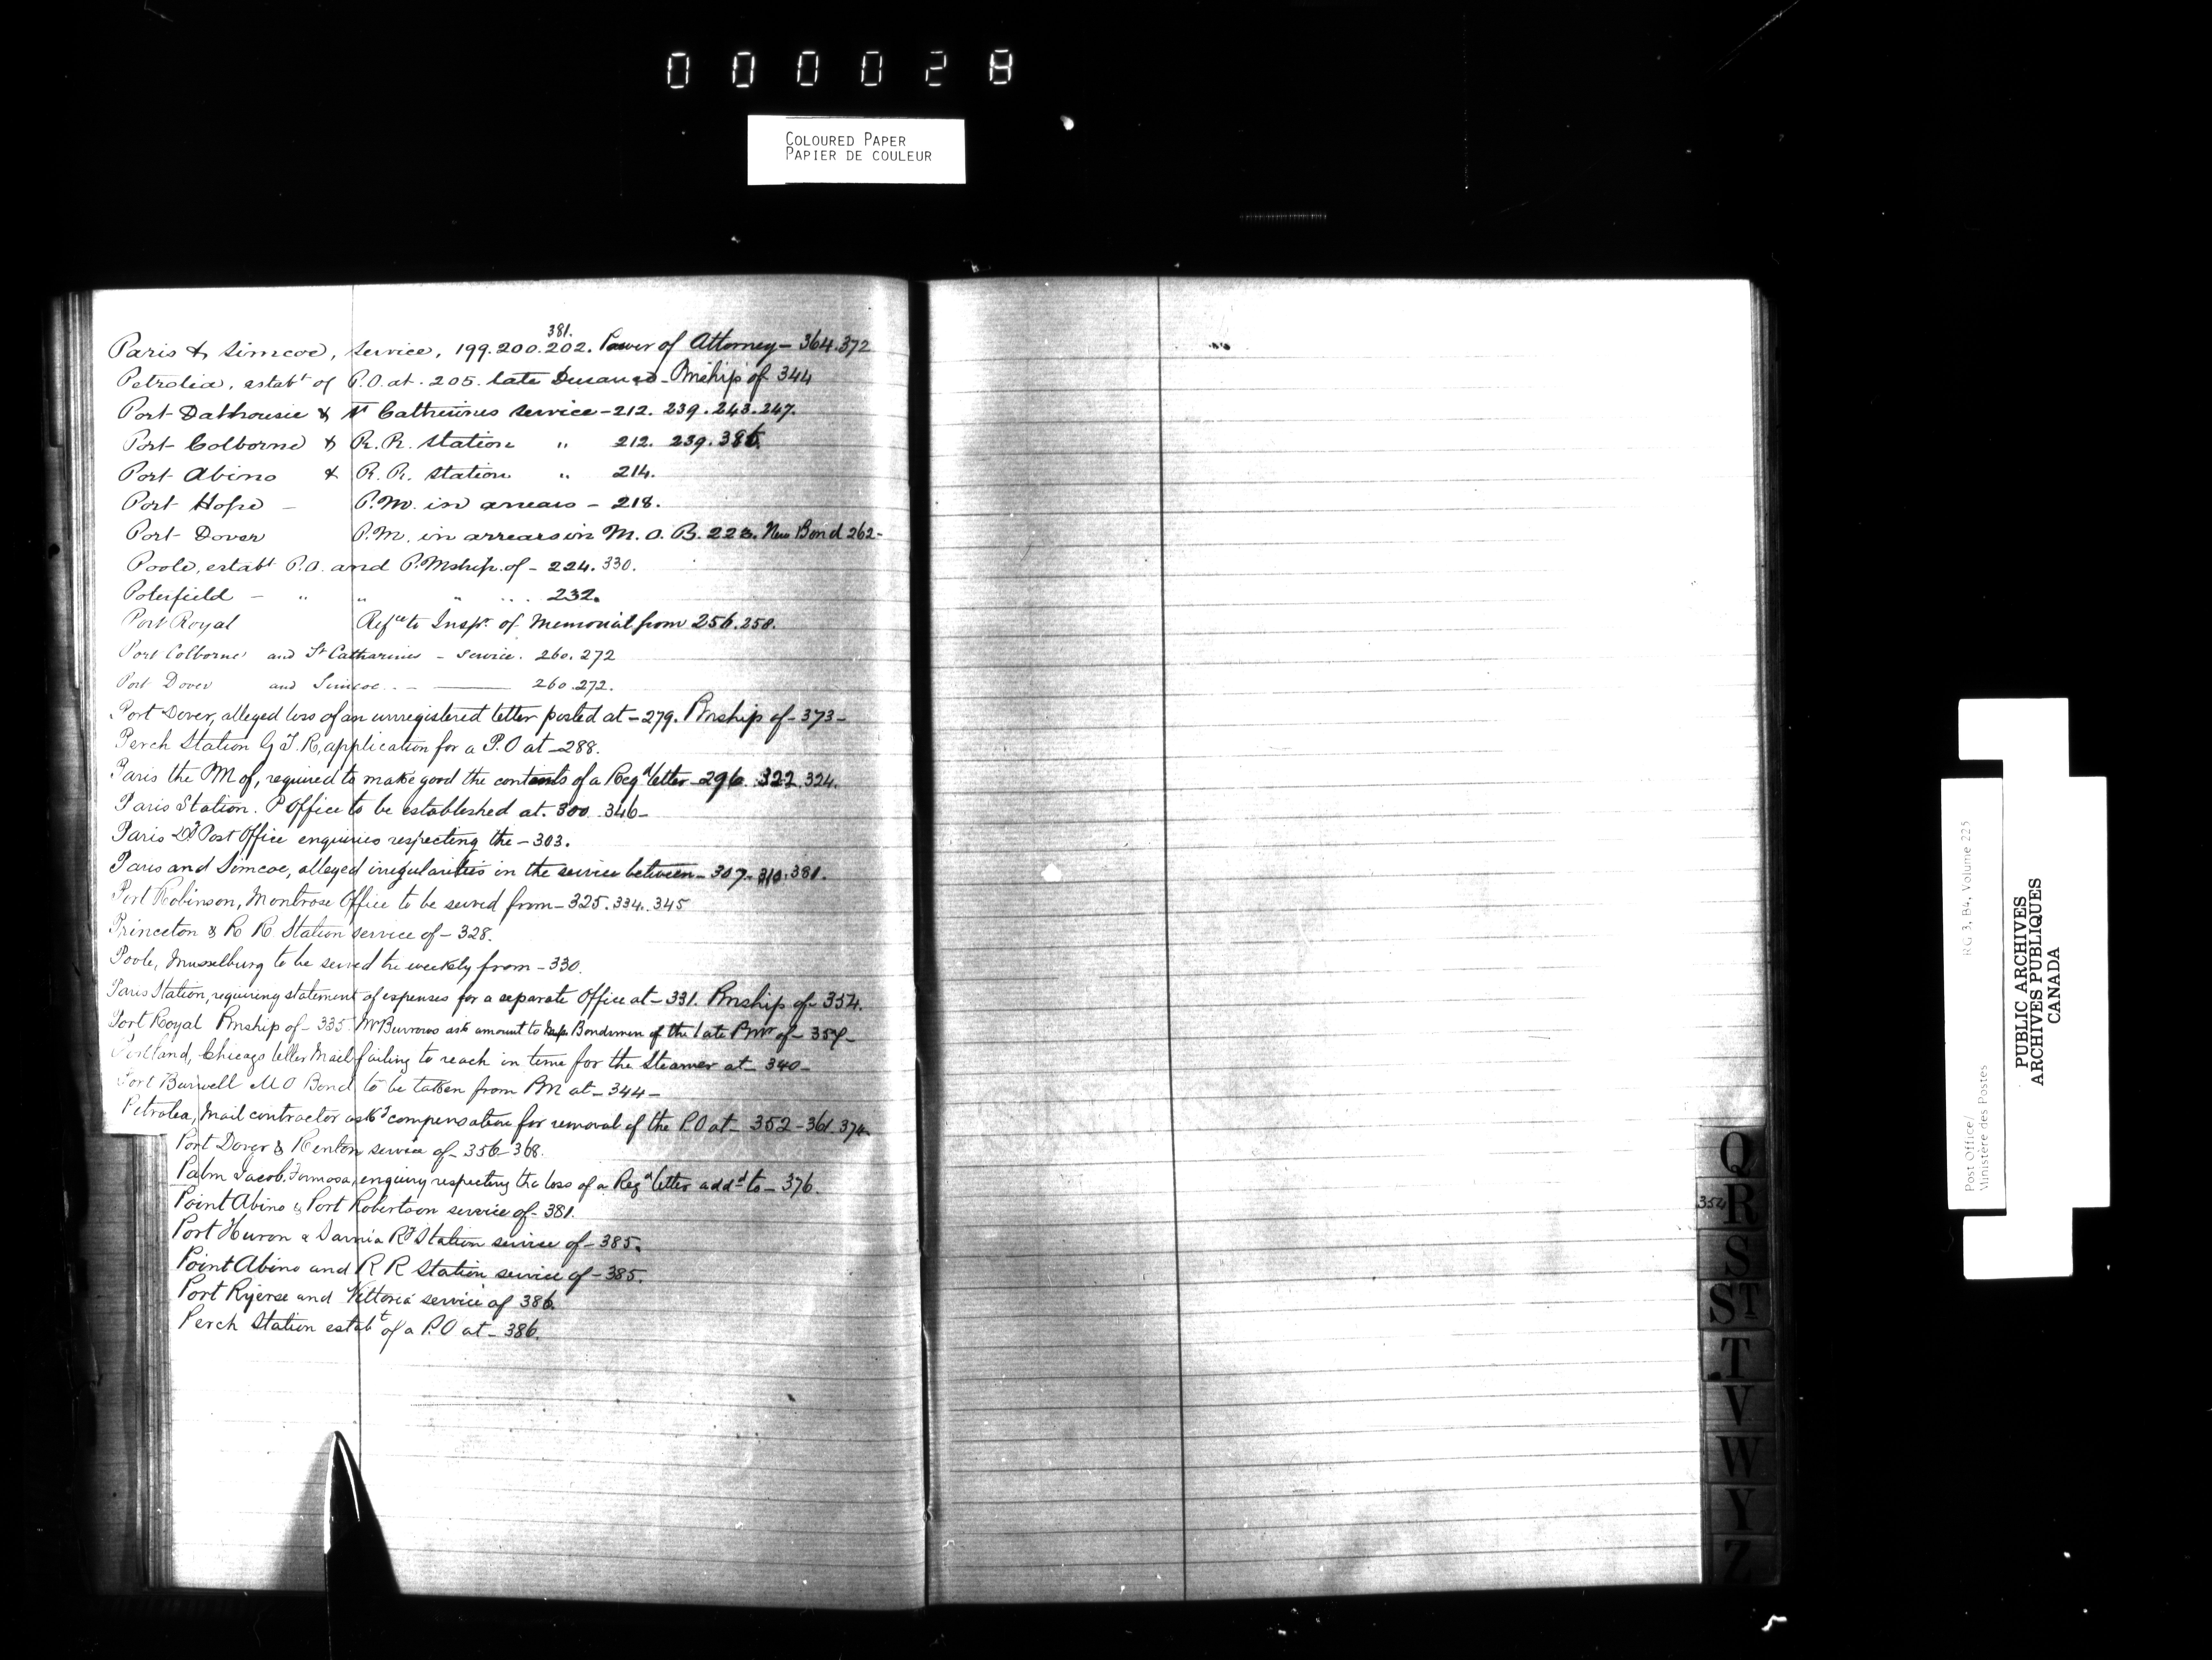 000028
COLOURED PAPER
PAPIER DE COULEUR
381.
Paris & Simcoe, Service, 199. 200. 202. Power of Attorney - 364. 372
Petrolia, establt of P.O. at. 205. late - Pmship of 344
Port Dalhousie & St Catherines Service - 212. 239. 243. 247.
Port Colborne & R.R. Station " 212. 239. 386.
Port Abino & R.R. Station " 214.
Port Hope - P.M. in arrears - 218.
Port Dover P.M. in arrears in M.O.B. 223. New Bond 262-
Poole, establt P.O. and P.Mship. of - 224. 330.
Poterfield - " " " " 232.
Port Royal Refce to Inspr. of Memorial from 256. 258.
Port Colborne and St Catharines - Service. 260. 272
Port Dover and Simcoe - 260. 272.
Port Dover, alleged loss of an unregistered letter posted at - 279. Pmship of - 373-
Perch Station G.T.R, application for a P.O at - 288.
Paris the PM of, required to make good the contents of a Regd letter - 296. 322. 324.
Paris Station. P Office to be established at. 300. 346-
Paris Dt Post Office enquiries respecting the - 303.
Paris and Simcoe, alleged irregularities in the service between - 307. 310. 381.
Port Robinson, Montrose Office to be served from - 325. 334. 345
Princeton & R R Station service of - 328.
Poole, Musselburg to be served tri weekly from - 330.
Paris Station, requiring statement of expenses for a separate Office at - 331. Pmship of 354.
Port Royal Pmship of - 335 Mr Burrows ask amount to Bondsmen of the late Pmr of -
Portland, Chicago letter Mail failing to reach in time for the Steamer at - 340-
Port Burwell M O Bond to be taken from PM at - 344-
Petrolea, Mail contractor askg compensation for removal of the P.O at - 352 - 361. 374.
Port Dover & Renton service of - 356 - 368.
Palm Jacob, Formosa, enquiry respecting the loss of a Regd letter addd to - 376.
Point Abino & Port Robertson service of - 381.
Port Huron & Sarnia Ry Station service of - 385.
Point Abino and R R Station service of - 385.
Port Ryerse and Vittoria service of 386.
Perch Station establt of a P.O at - 386.
Q
354 R
S
ST
T
V
W
Y
Z
Post Office/
Ministère des Postes
RG 3, B4, Volume 225
PUBLIC ARCHIVES
ARCHIVES PUBLIQUES
CANADA